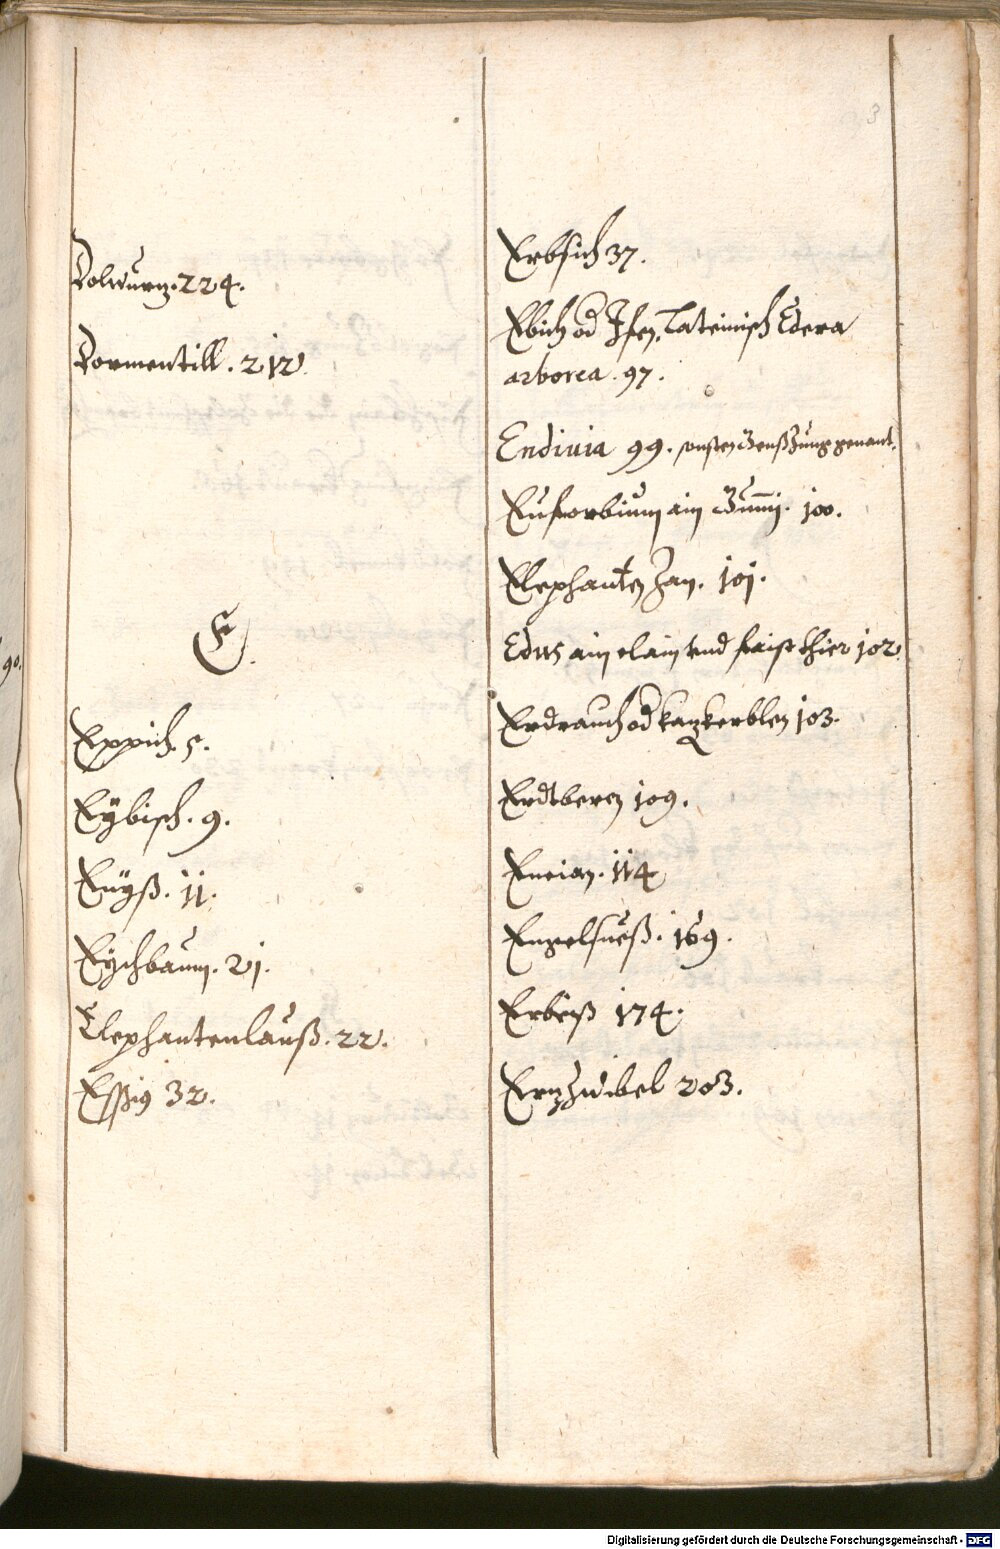 3
Dolwurtz. 224.
Dormentill. 212.
E.
Eppich. 5.
Eybisch. 9.
Enyß. 11.
Eychbaum. 21.
Elephantenlauß. 22.
Essig 32.
90.
Erbsich 37.
Ebich od Ifen. Lateinisch Edera
arborea. 97.
Endiuia 99. sonsten Genßzung genant.
Euforbium ain Gummi. 100.
Elephanten Zan. 101.
Edus ain clain vnd faist thier 102.
Erdrauch od katzkerblen 103.
Erdtberen 109.
Encian. 114.
Engelsueß. 169.
Erbeiß 174.
Ertzzwibel 203.
Digitalisierung gefördert durch die Deutsche Forschungsgemeinschaft - DFG